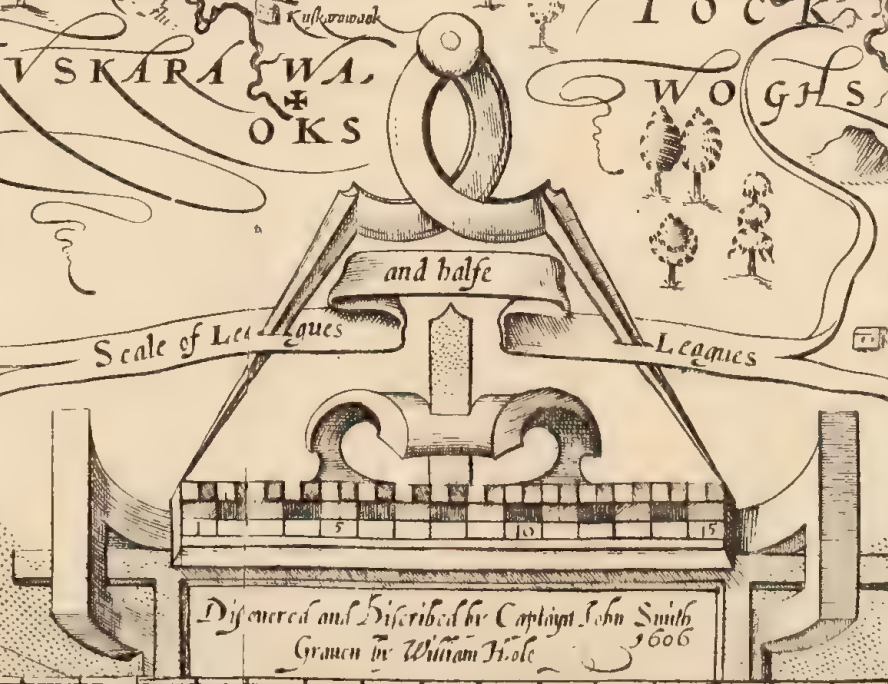 Kuskarawaok
TOCK
VSKARA WA,
OKS
WOGHS
and halfe
Scale of Leagues
Leagues
1 5 10 15
Discouered and Discribed by Captayn John Smith
1606
Grauen by William Hole